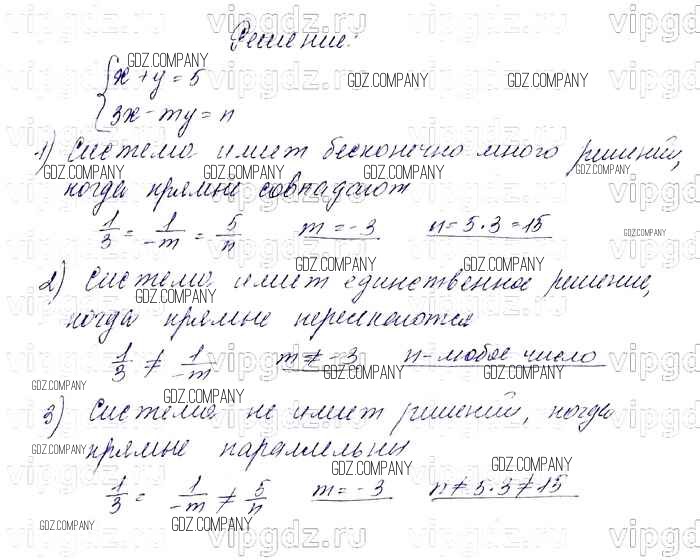 Решение:
{x + y = 5
3x - my = n
1) Система имеет бесконечно много решений,
когда прямые совпадают
1/3 = 1/-m = 5/n   m = -3   n = 5·3 = 15
2) Система имеет единственное решение,
когда прямые пересекаются
1/3 ≠ 1/-m   m ≠ -3   n - любое число
3) Система не имеет решений, когда
прямые параллельны
1/3 = 1/-m ≠ 5/n   m = -3   n ≠ 5·3 ≠ 15
GDZ.COMPANY
vipgdz.ru